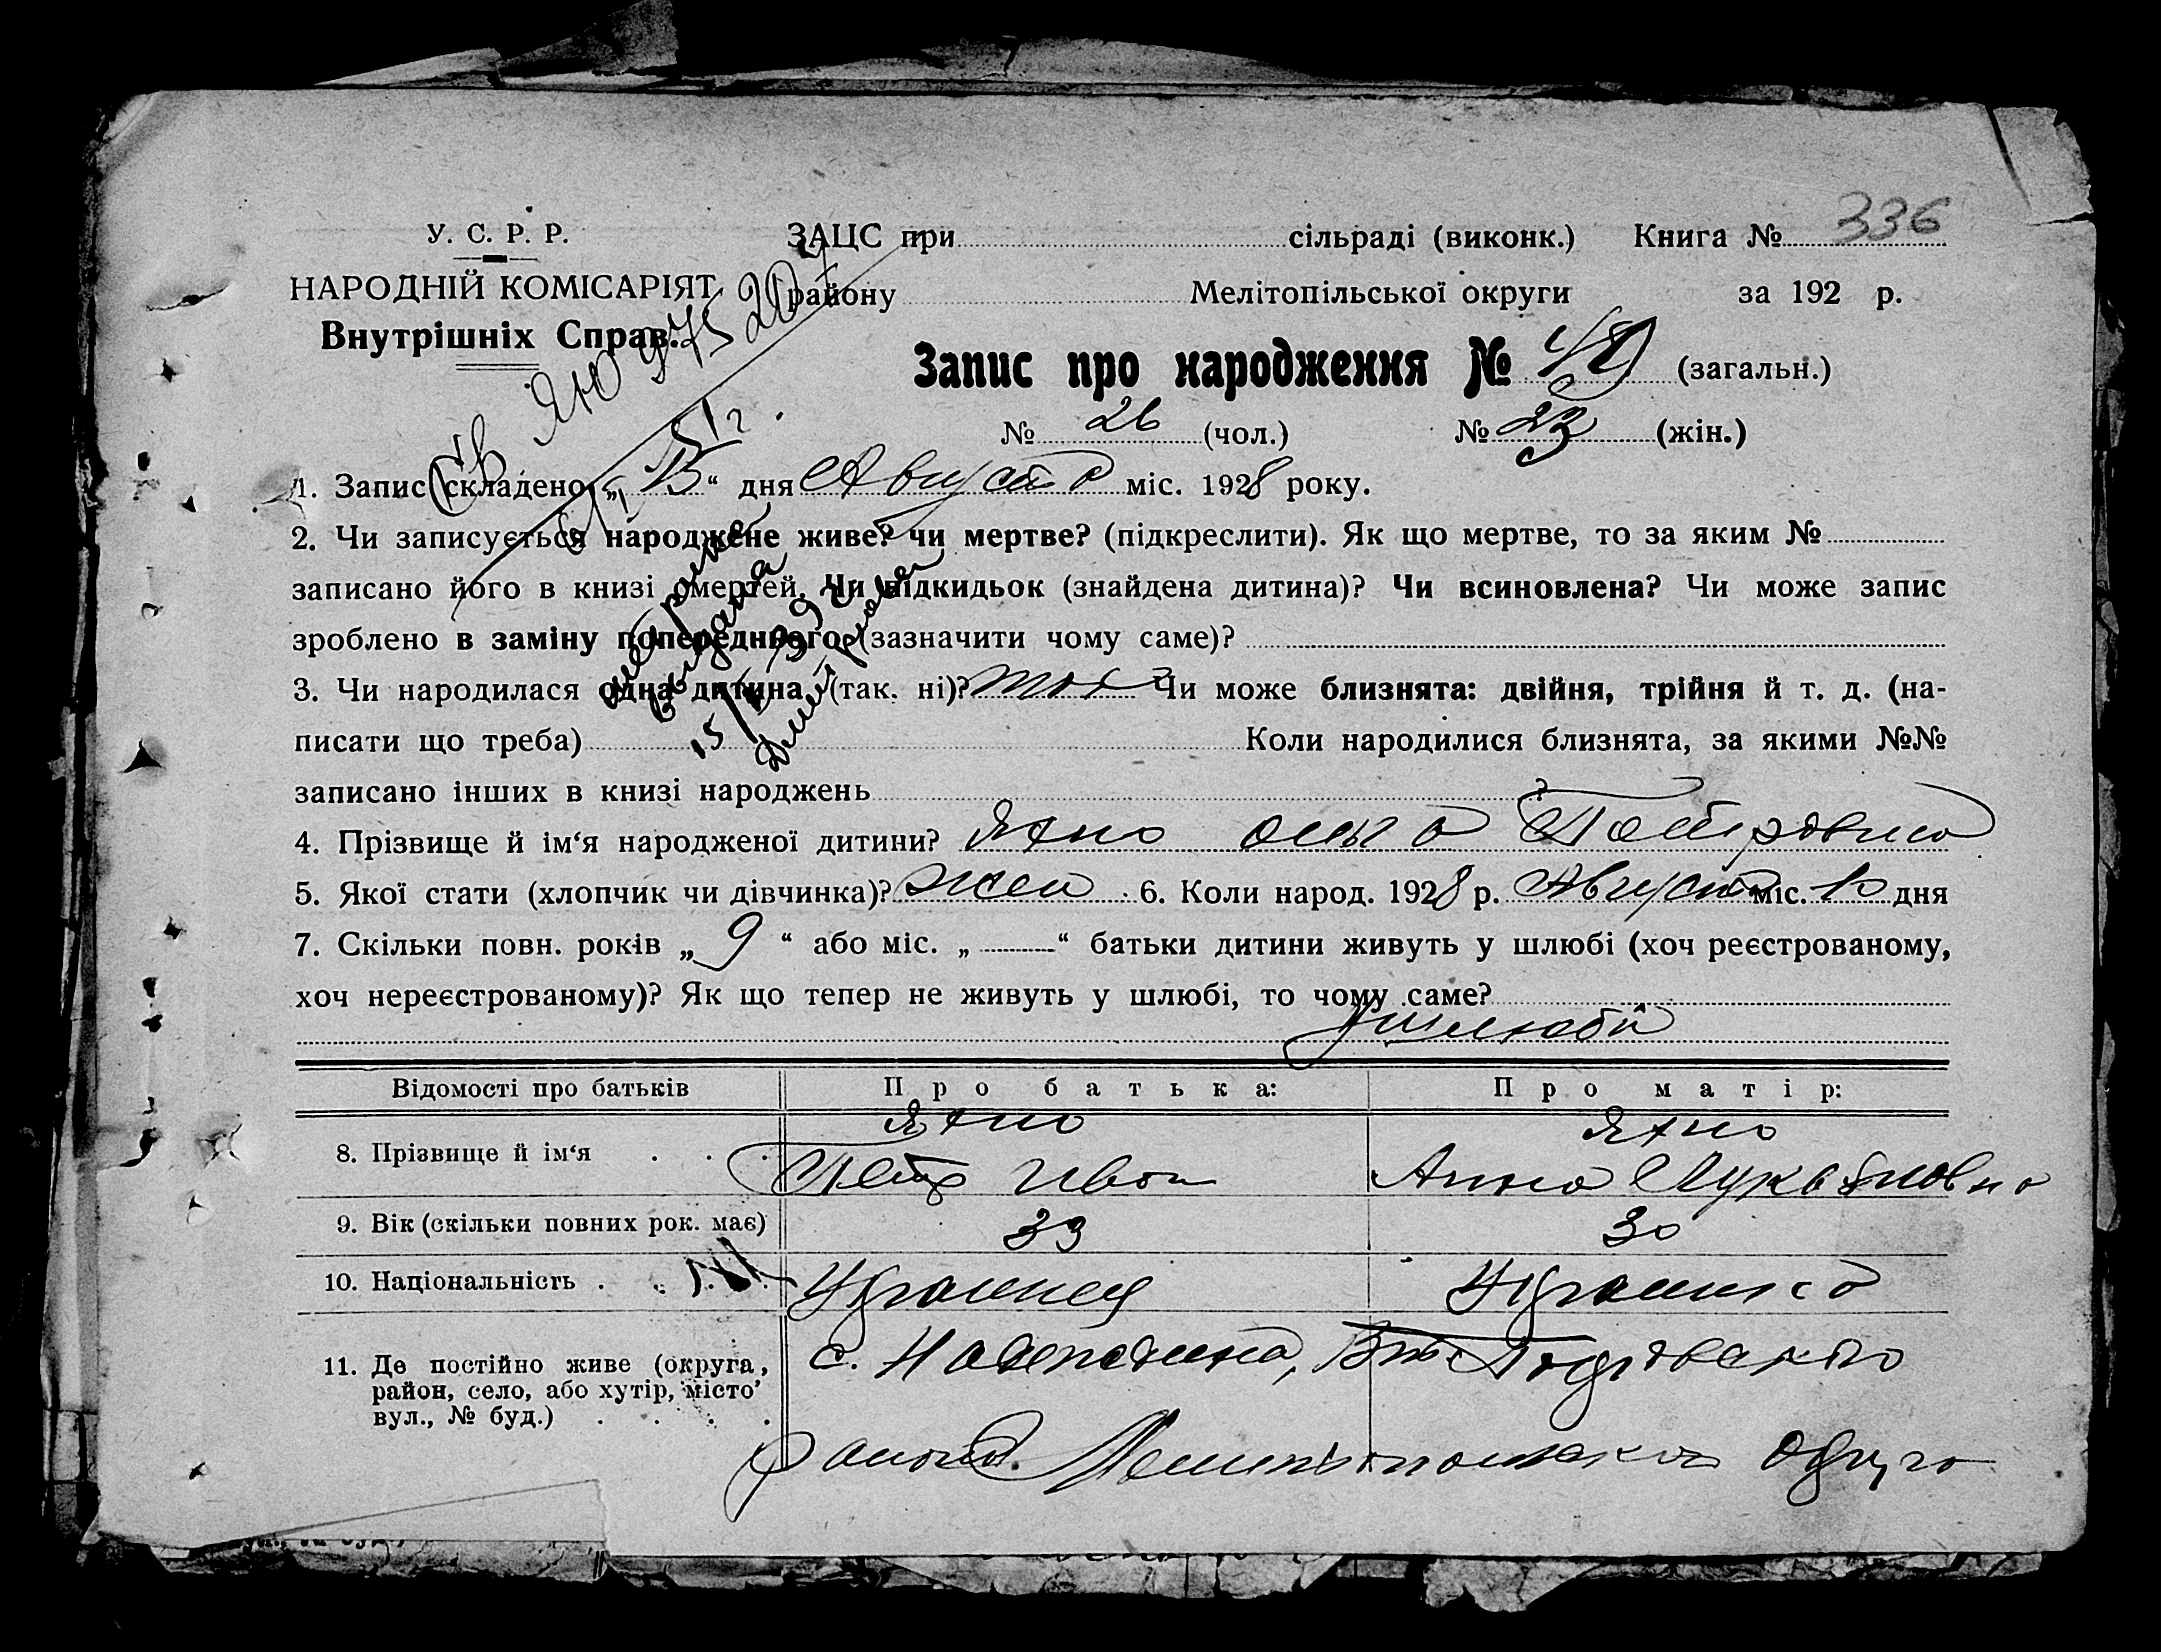 336
У. С. Р. Р. ЗАЦС при сільраді (виконк.) Книга №
НАРОДНІЙ КОМІСАРІЯТ району Мелітопільської округи за 192 р.
Внутрішніх Справ.
Запис про народження № 49 (загальн.)
№ 26 (чол.) № 23 (жін.)
1. Запис складено „15“ дня Августа міс. 1928 року.
2. Чи записується народжене живе? чи мертве? (підкреслити). Як що мертве, то за яким №
записано його в книзі смертей. Чи підкидьок (знайдена дитина)? Чи всиновлена? Чи може запис
зроблено в заміну попереднього (зазначити чому саме)?
3. Чи народилася одна дитина (так. ні)? так Чи може близнята: двійня, трійня й т. д. (на-
писати що треба) Коли народилися близнята, за якими №№
записано інших в книзі народжень ?
4. Прізвище й ім‘я народженої дитини? Яхно Петровна
5. Якої стати (хлопчик чи дівчинка)? жен 6. Коли народ. 1928 р. Август міс. 10 дня
7. Скільки повн. років „ 9 “ або міс. „ “ батьки дитини живуть у шлюбі (хоч реєстрованому,
хоч нереєстрованому)? Як що тепер не живуть у шлюбі, то чому саме?
У шлюбі
Відомості про батьків Про батька: Про матір:
8. Прізвище й ім‘я . . . Яхно Яхно
Петр Иван Анна Лукьяновна
9. Вік (скільки повних рок. має) 33 30
10. Національність . . . Украинец Украинка
11. Де постійно живе (округа,
район, село, або хутір, місто
вул., № буд.) . . . .
района. Мелитопольская округа